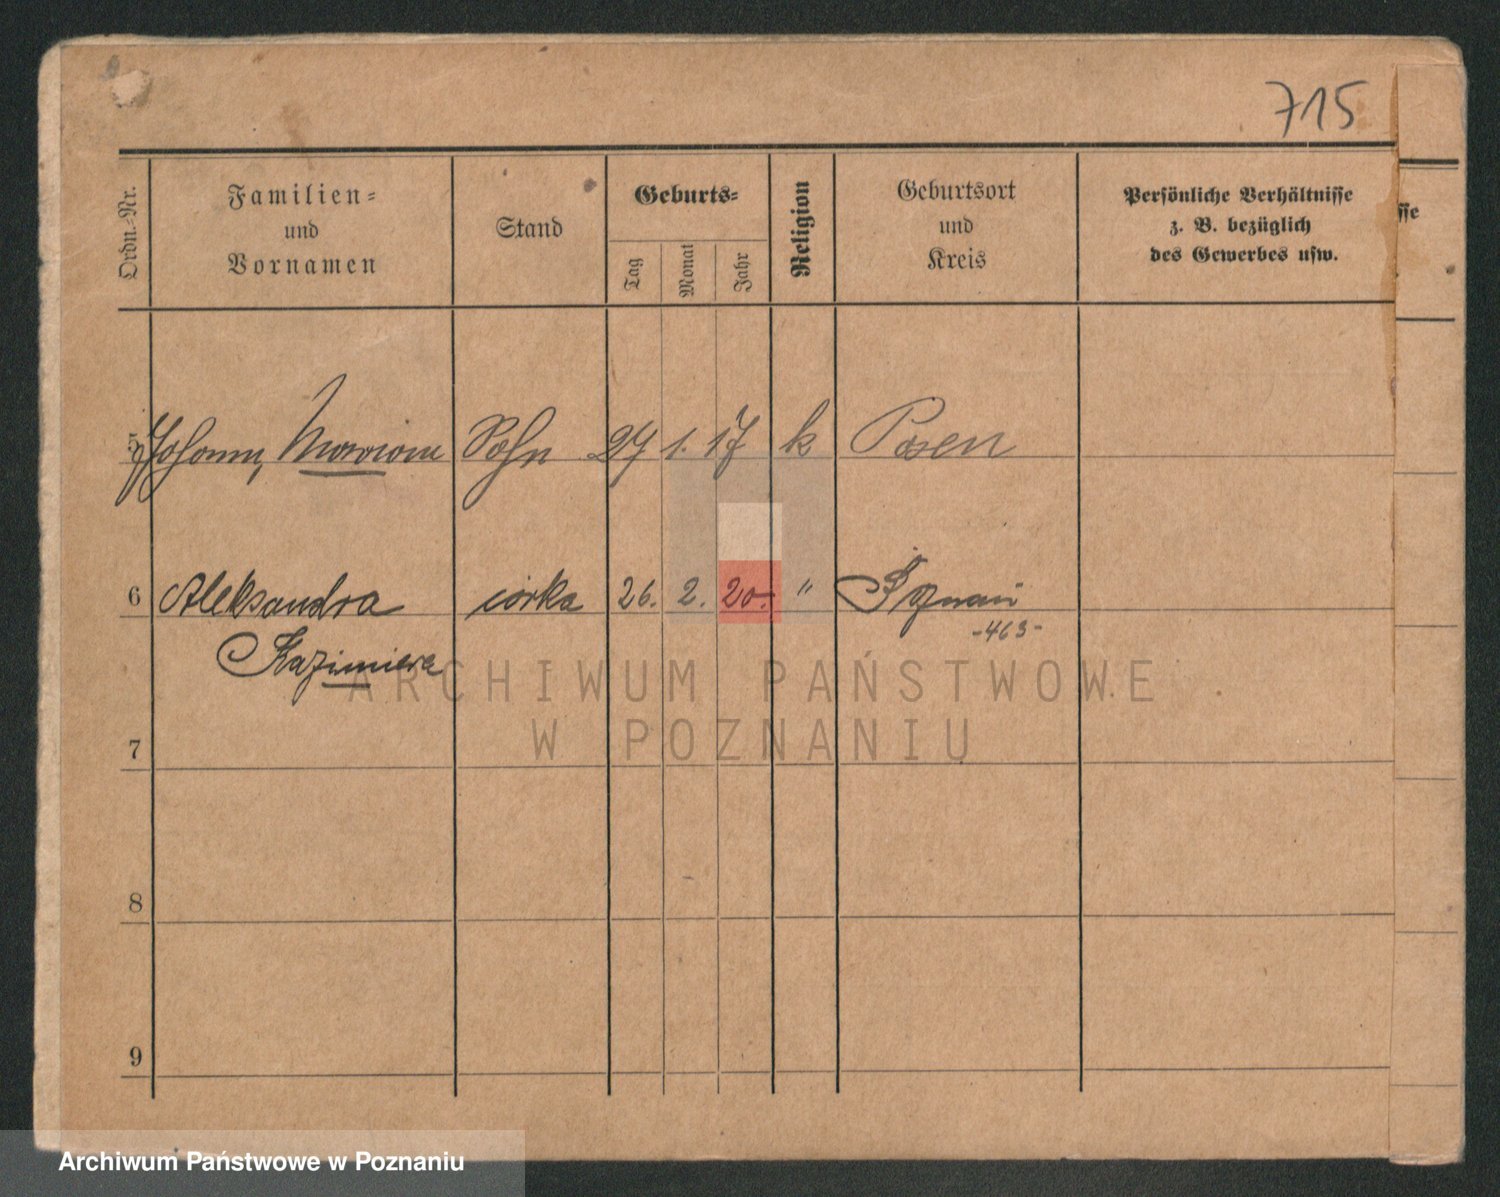 715
Ordn.-Nr.
Familien-
und
Vornamen
Stand
Geburts-
Tag
Monat
Jahr
Religion
Geburtsort
und
Kreis
Persönliche Verhältnisse
z. B. bezüglich
des Gewerbes usw.
sse
5 Johann, Marian Sohn 27 1. 17 k Posen
6 Aleksandra córka 26. 2. 20. " Poznań
-463-
Kazimiera
7
8
9
ARCHIWUM PAŃSTWOWE
W POZNANIU
Archiwum Państwowe w Poznaniu